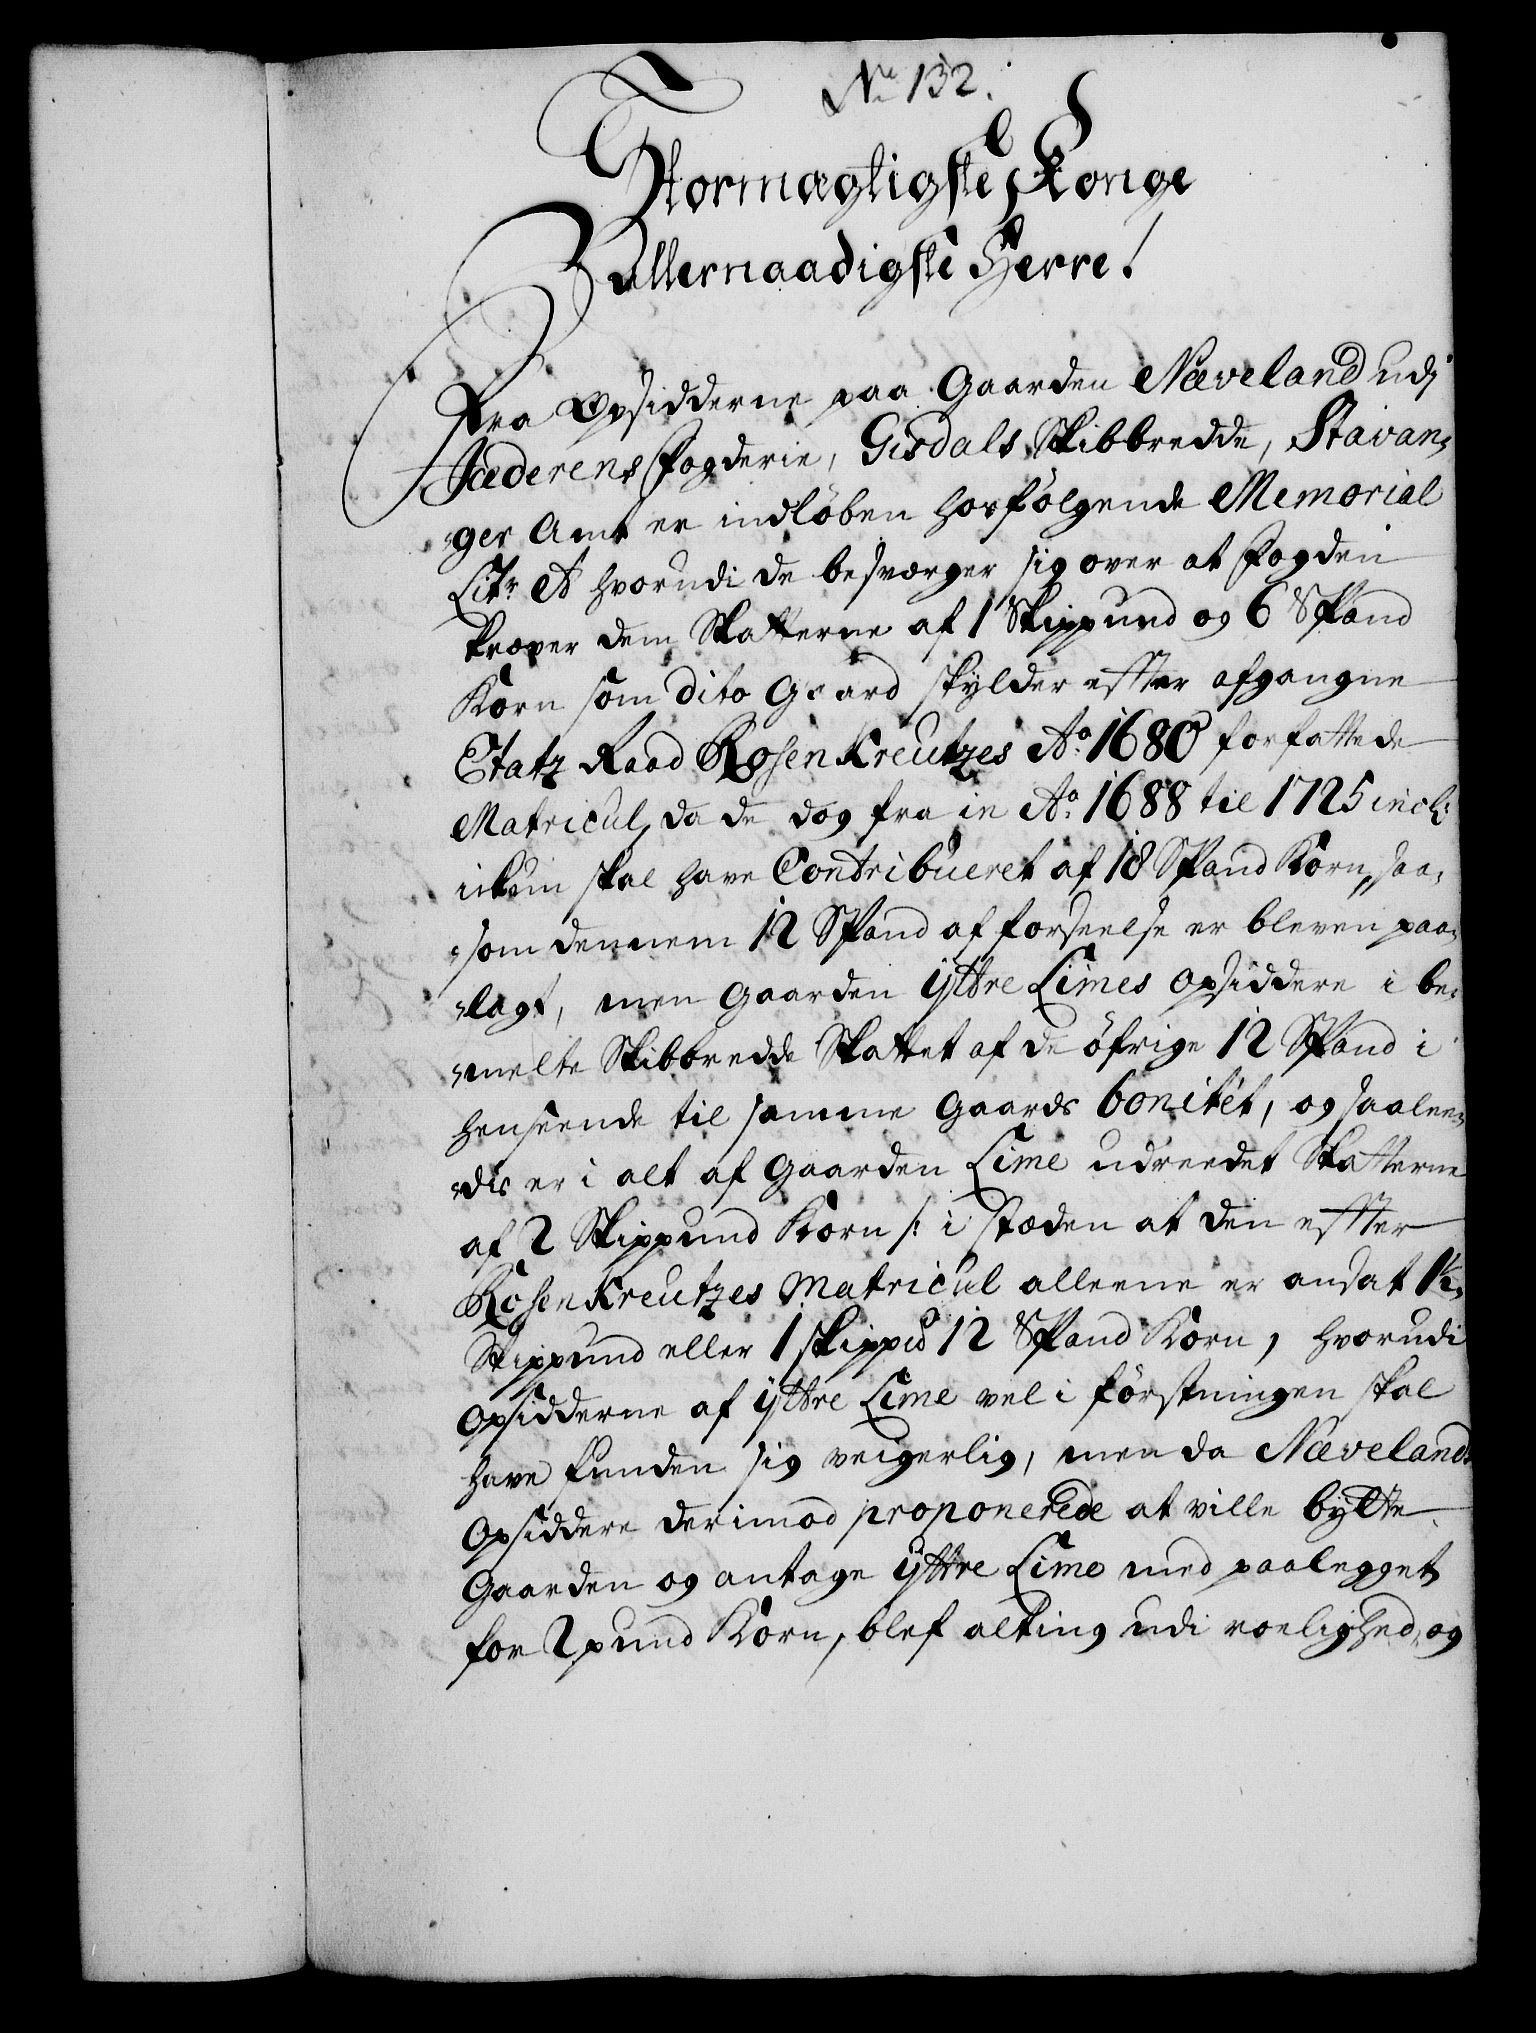 No 132.
Stormægtigste Konge
Allernaadigste Herre!
Fra Opsidderne paa Gaarden Næveland udj
Jæderens Fogderie, Giesdals Skibbredde, Stavan-
-ger Amt er indløben hosfølgende Memorial
Litr A hvorudi de besværger sig over at Fogden
kræver dem Skatterne af 1 Skippund og 6 Spand
Korn som dito Gaard skylder effter afgangne
Etatz Raad RosenKreutzes Ao 1680 forfattede
Matricul, da de dog fra in Ao 1688 til 1725 incl:
ickun skal have Contribueret af 18 Spand Korn, saa-
-som dennem 12 Spand af forseelse er bleven paa-
-lagt, men Gaarden ÿttre Limes opsiddere i be-
-melte Skibbredde Skattet af de øfrige 12 Spand i
henseende til samme Gaards bonitét, og saalee-
-dis er i alt af Gaarden Lime udreedet Skatterne
af 2 Skippund Korn /: i stæden at den effter
RosenKreutzes Matricul alleene er ansat 1½
Skippund eller 1 skippd 12 Spand Korn, hvorudi
Opsidderne af ÿttre Lime vel iførstningen skal
have funden sig veigerlig, men da Nævelands
Opsiddere derimod proponerede at ville bÿtte
Gaarden og antage ÿttre Lime med paalegget
for 2 pund Korn, blef alting udi roelighed, og